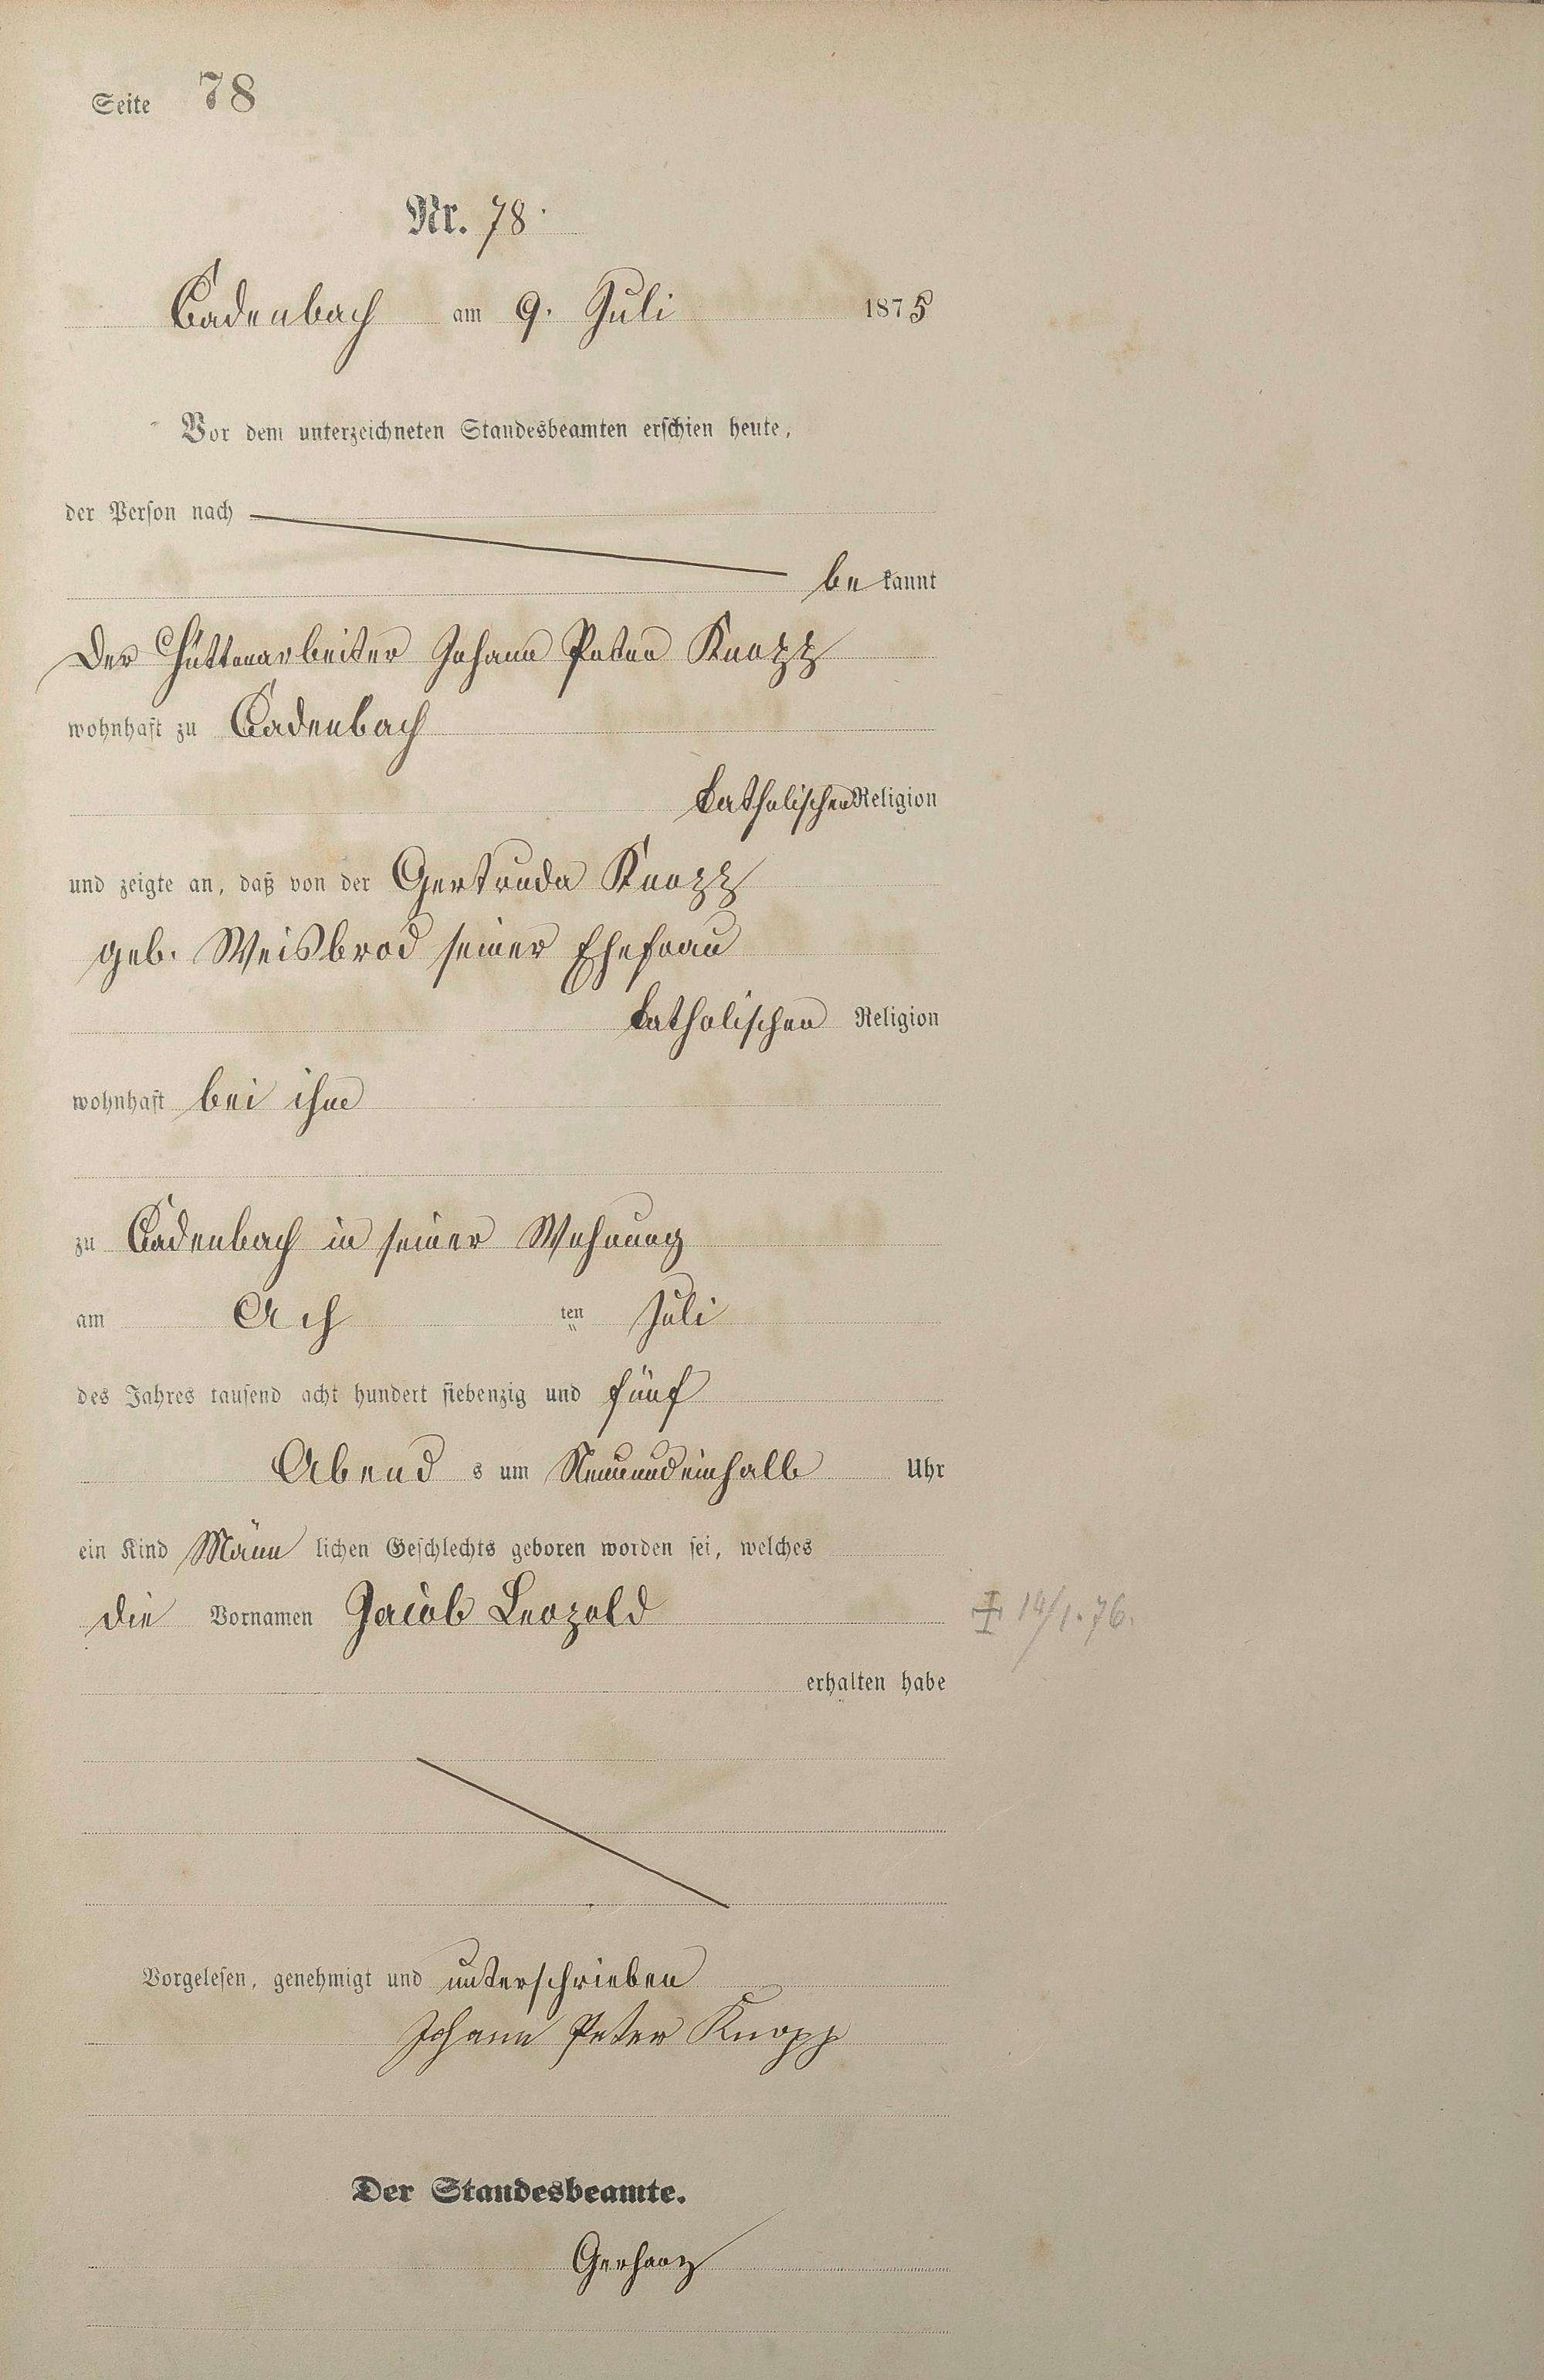 Seite 78
Nr. 78.
Cadenbach am 9. Juli 1875
Vor dem unterzeichneten Standesbeamten erschien heute,
der Person nach
be kannt
Der Hüttenarbeiter Johann Peter Knopp
wohnhaft zu Cadenbach
katholischer Religion
und zeigte an, daß von der Gertruda Knopp
geb. Weisbrod seiner Ehefrau
katholischer Religion
wohnhaft bei ihm
zu Cadenbach in seiner Wohnung
am Ach ten Juli
des Jahres tausend acht hundert siebenzig und fünf
Abend s um Neunundeinhalb Uhr
ein Kind Männ lichen Geschlechts geboren worden sei, welches
die Vornamen Jacob Leopold
‡ 14/1.76.
erhalten habe
Vorgelesen, genehmigt und unterschrieben
Johann Peter Knopp
Der Standesbeamte.
Gerharz